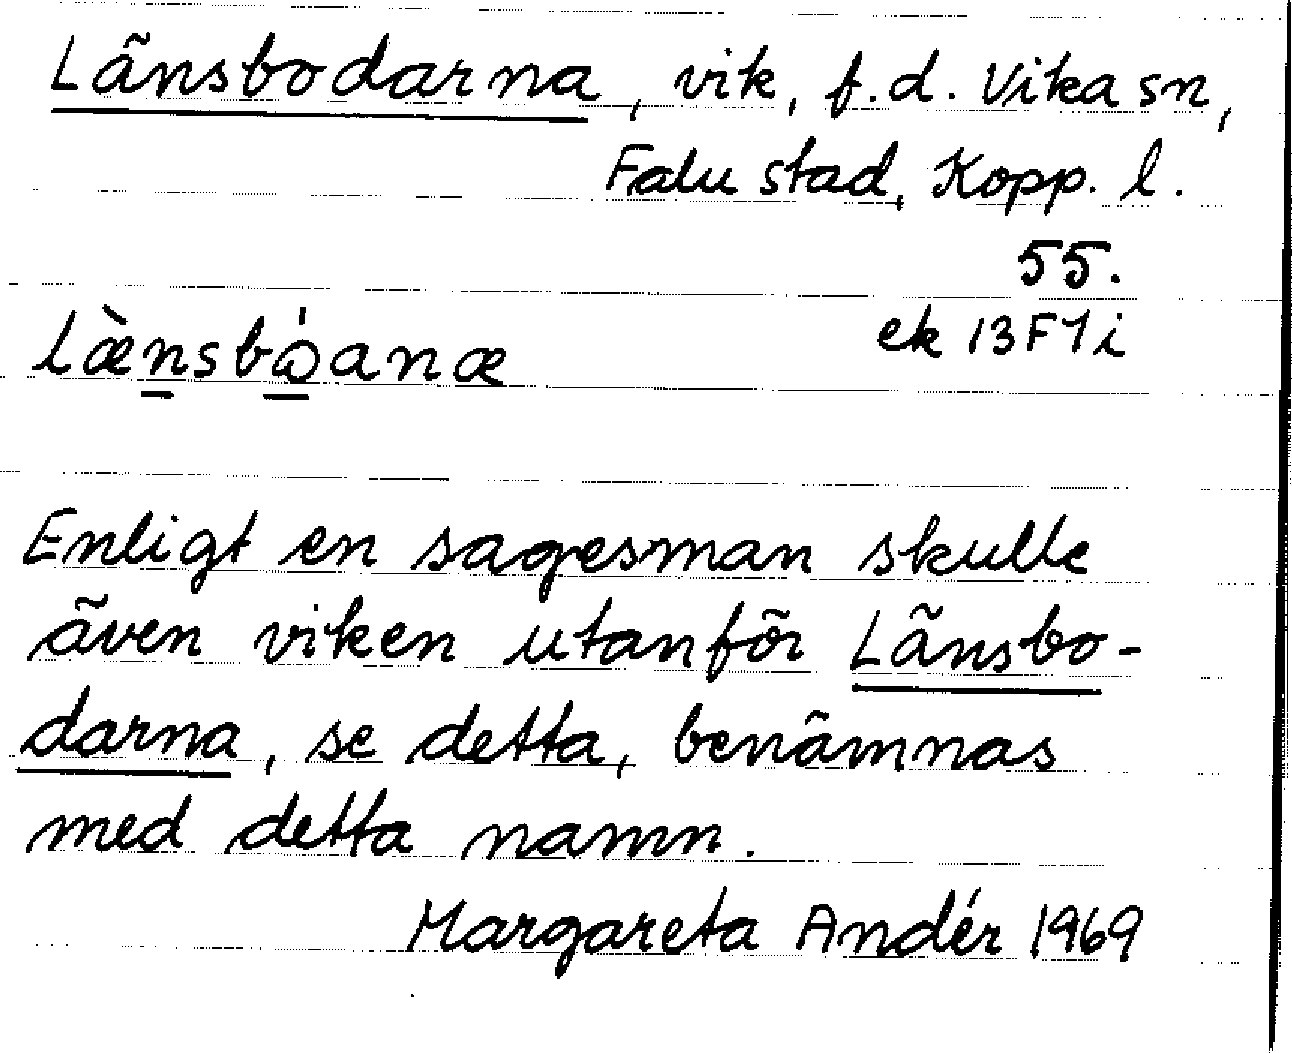 Länsbodarna, vik, f.d. Vika sn,
Falu stad, Kopp. l.
55.
ek 13F1i
Enligt en sagesman skulle
även viken utanför Länsbo-
darna, se detta, benämnas
med detta namn.
Margareta Andér 1969